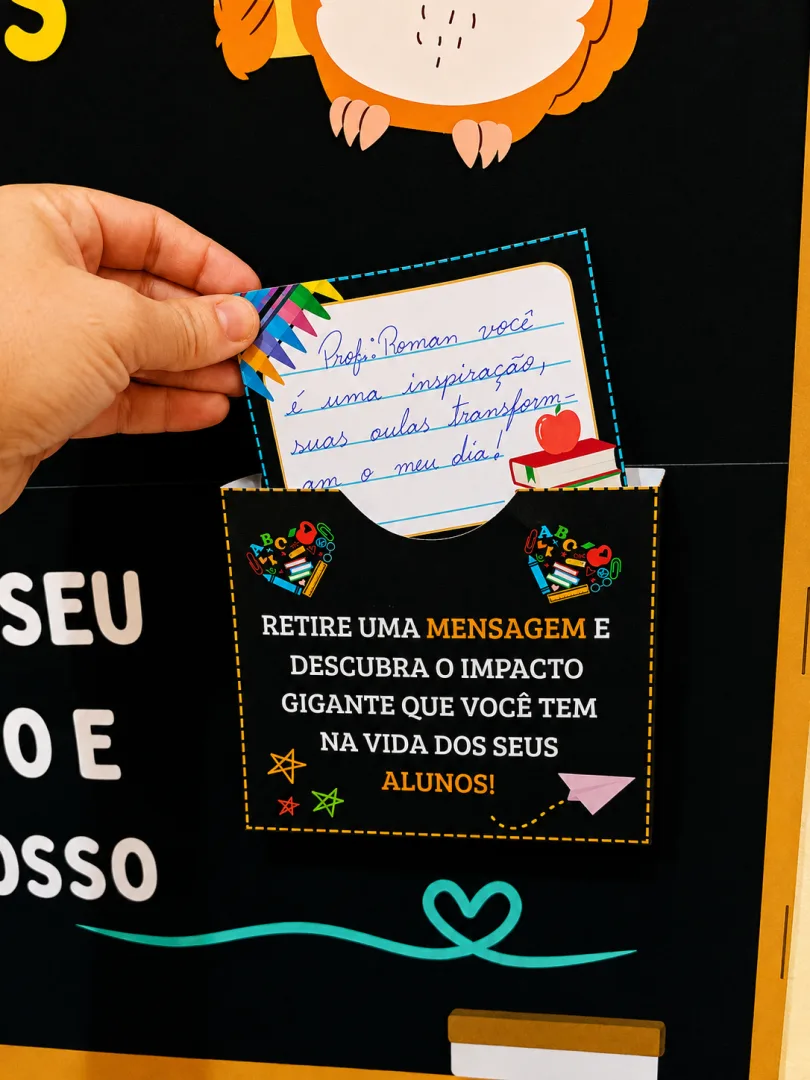 S
Prof.: Roman você
é uma inspiração,
suas oulas transform-
am o meu dia!
RETIRE UMA MENSAGEM E
DESCUBRA O IMPACTO
GIGANTE QUE VOCÊ TEM
NA VIDA DOS SEUS
ALUNOS!
SEU
O E
OSSO